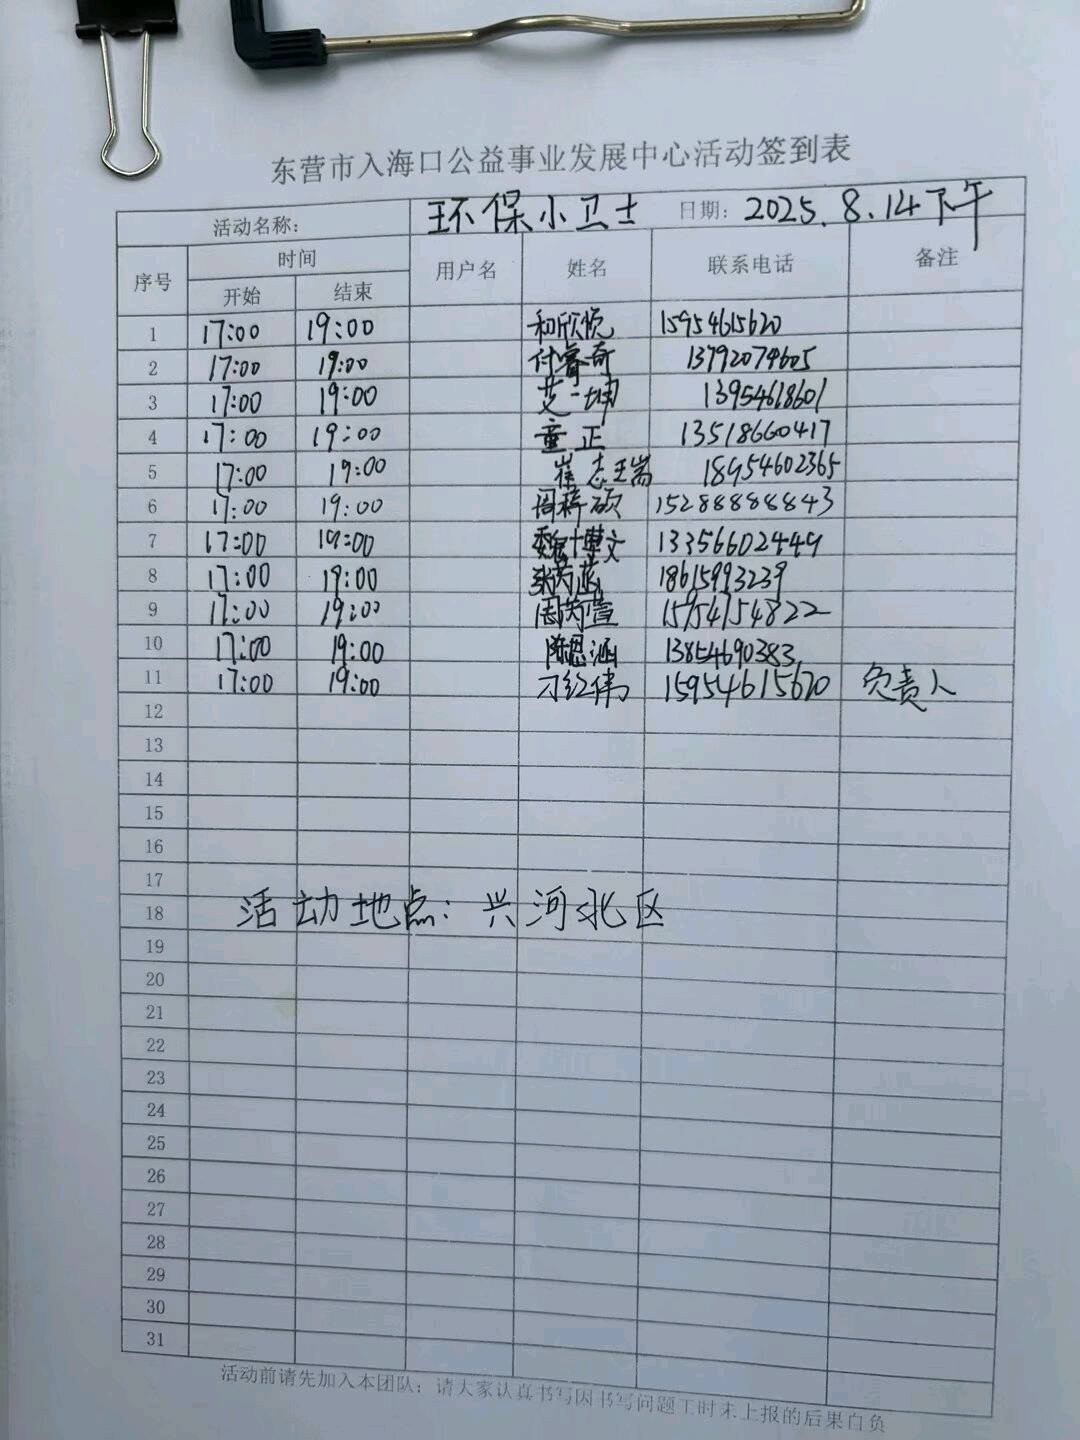 东营市入海口公益事业发展中心活动签到表
活动名称: 环保小卫士 日期: 2025.8.14下午
序号 时间 用户名 姓名 联系电话 备注
开始 结束
1 17:00 19:00 和欣悦 15954615620
2 17:00 19:00 付睿奇 13792074605
3 17:00 19:00 艾一坤 13954618601
4 17:00 19:00 童正 13518660417
5 17:00 19:00 崔志 18954602365
6 17:00 19:00 周梓硕 15288888843
7 17:00 19:00 魏博文 13356602449
8 17:00 19:00 张芮菡 18615993239
9 17:00 19:00 周芮萱 15954754822
10 17:00 19:00 陈思涵 13854690383
11 17:00 19:00 刁红伟 15954615620 负责人
12
13
14
15
16
17
18 活动地点: 兴河北区
19
20
21
22
23
24
25
26
27
28
29
30
31
活动前请先加入本团队; 请大家认真书写因书写问题工时未上报的后果自负